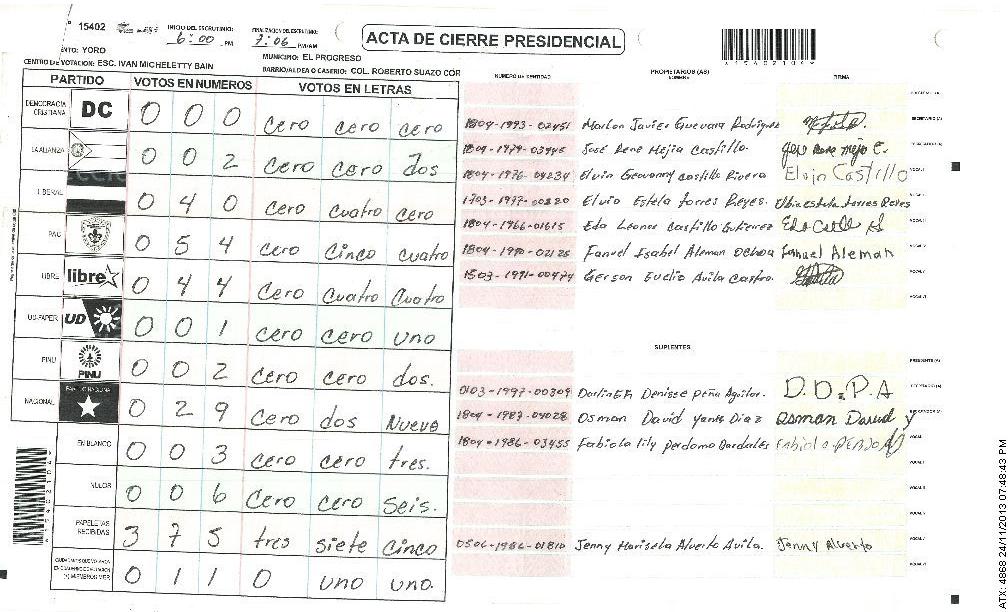 15402 INICIO DEL ESCRUTINIO: 6:00 PM FINALIZACION DEL ESCRUTINIO: 7:06 PM/AM
ACTA DE CIERRE PRESIDENCIAL
*15402104*
YORO MUNICIPIO: EL PROGRESO
CENTRO DE VOTACION: ESC. IVAN MICHELETTY BAIN BARRIO/ALDEA O CASERIO: COL. ROBERTO SUAZO COR
PARTIDO VOTOS EN NUMEROS VOTOS EN LETRAS
DEMOCRACIA CRISTIANA DC 0 0 0 cero cero cero
LA ALIANZA 0 0 2 cero cero dos
0 4 0 cero cuatro cero
PAC 0 5 4 cero cinco cuatro
LIBRE libre 0 4 4 cero cuatro cuatro
UD-FAPER UD 0 0 1 cero cero uno
PINU PINU 0 0 2 cero cero dos.
NACIONAL 0 2 9 cero dos Nueve
EN BLANCO 0 0 3 cero cero tres.
NULOS 0 0 6 cero cero seis.
PAPELETAS RECIBIDAS 3 7 5 tres siete cinco
0 1 1 0 uno uno.
NUMERO DE IDENTIDAD PROPIETARIOS (AS) NOMBRE FIRMA
1804-1993-02451 Marlon Javier Guevara Rodriguez
1804-1979-03945 José Rene Mejia Castillo.
1804-1976-04234 Elvin Geovanny castillo Rivera Elvin Castillo
1703-1977-00220 Elvia Estela torres Reyes. Elvia estela torres Reyes
1804-1966-01615 Eda Leonor Castillo Gutierrez
1804-1990-02125 Fanuel Isabel Aleman Ochoa Fanuel Aleman
1503-1991-00474 Gerson Euclio Avila Castro.
SUPLENTES
0103-1997-00309 Denisse peña Aguilar. D.D.P.A
1804-1987-04028 Osman David yanes Diaz Osman David y
1804-1986-03455 Fabiola lily perdomo Bardales
0506-1986-01810 Jenny Marisela Alverto Avila. Jenny Alverto
ATX: 4868 24/11/2013 07:48:43 PM